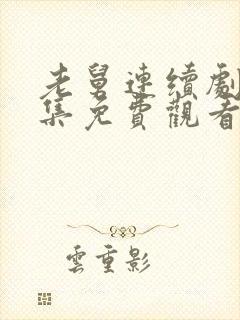 老舅連續劇
集免費觀看
雲重影